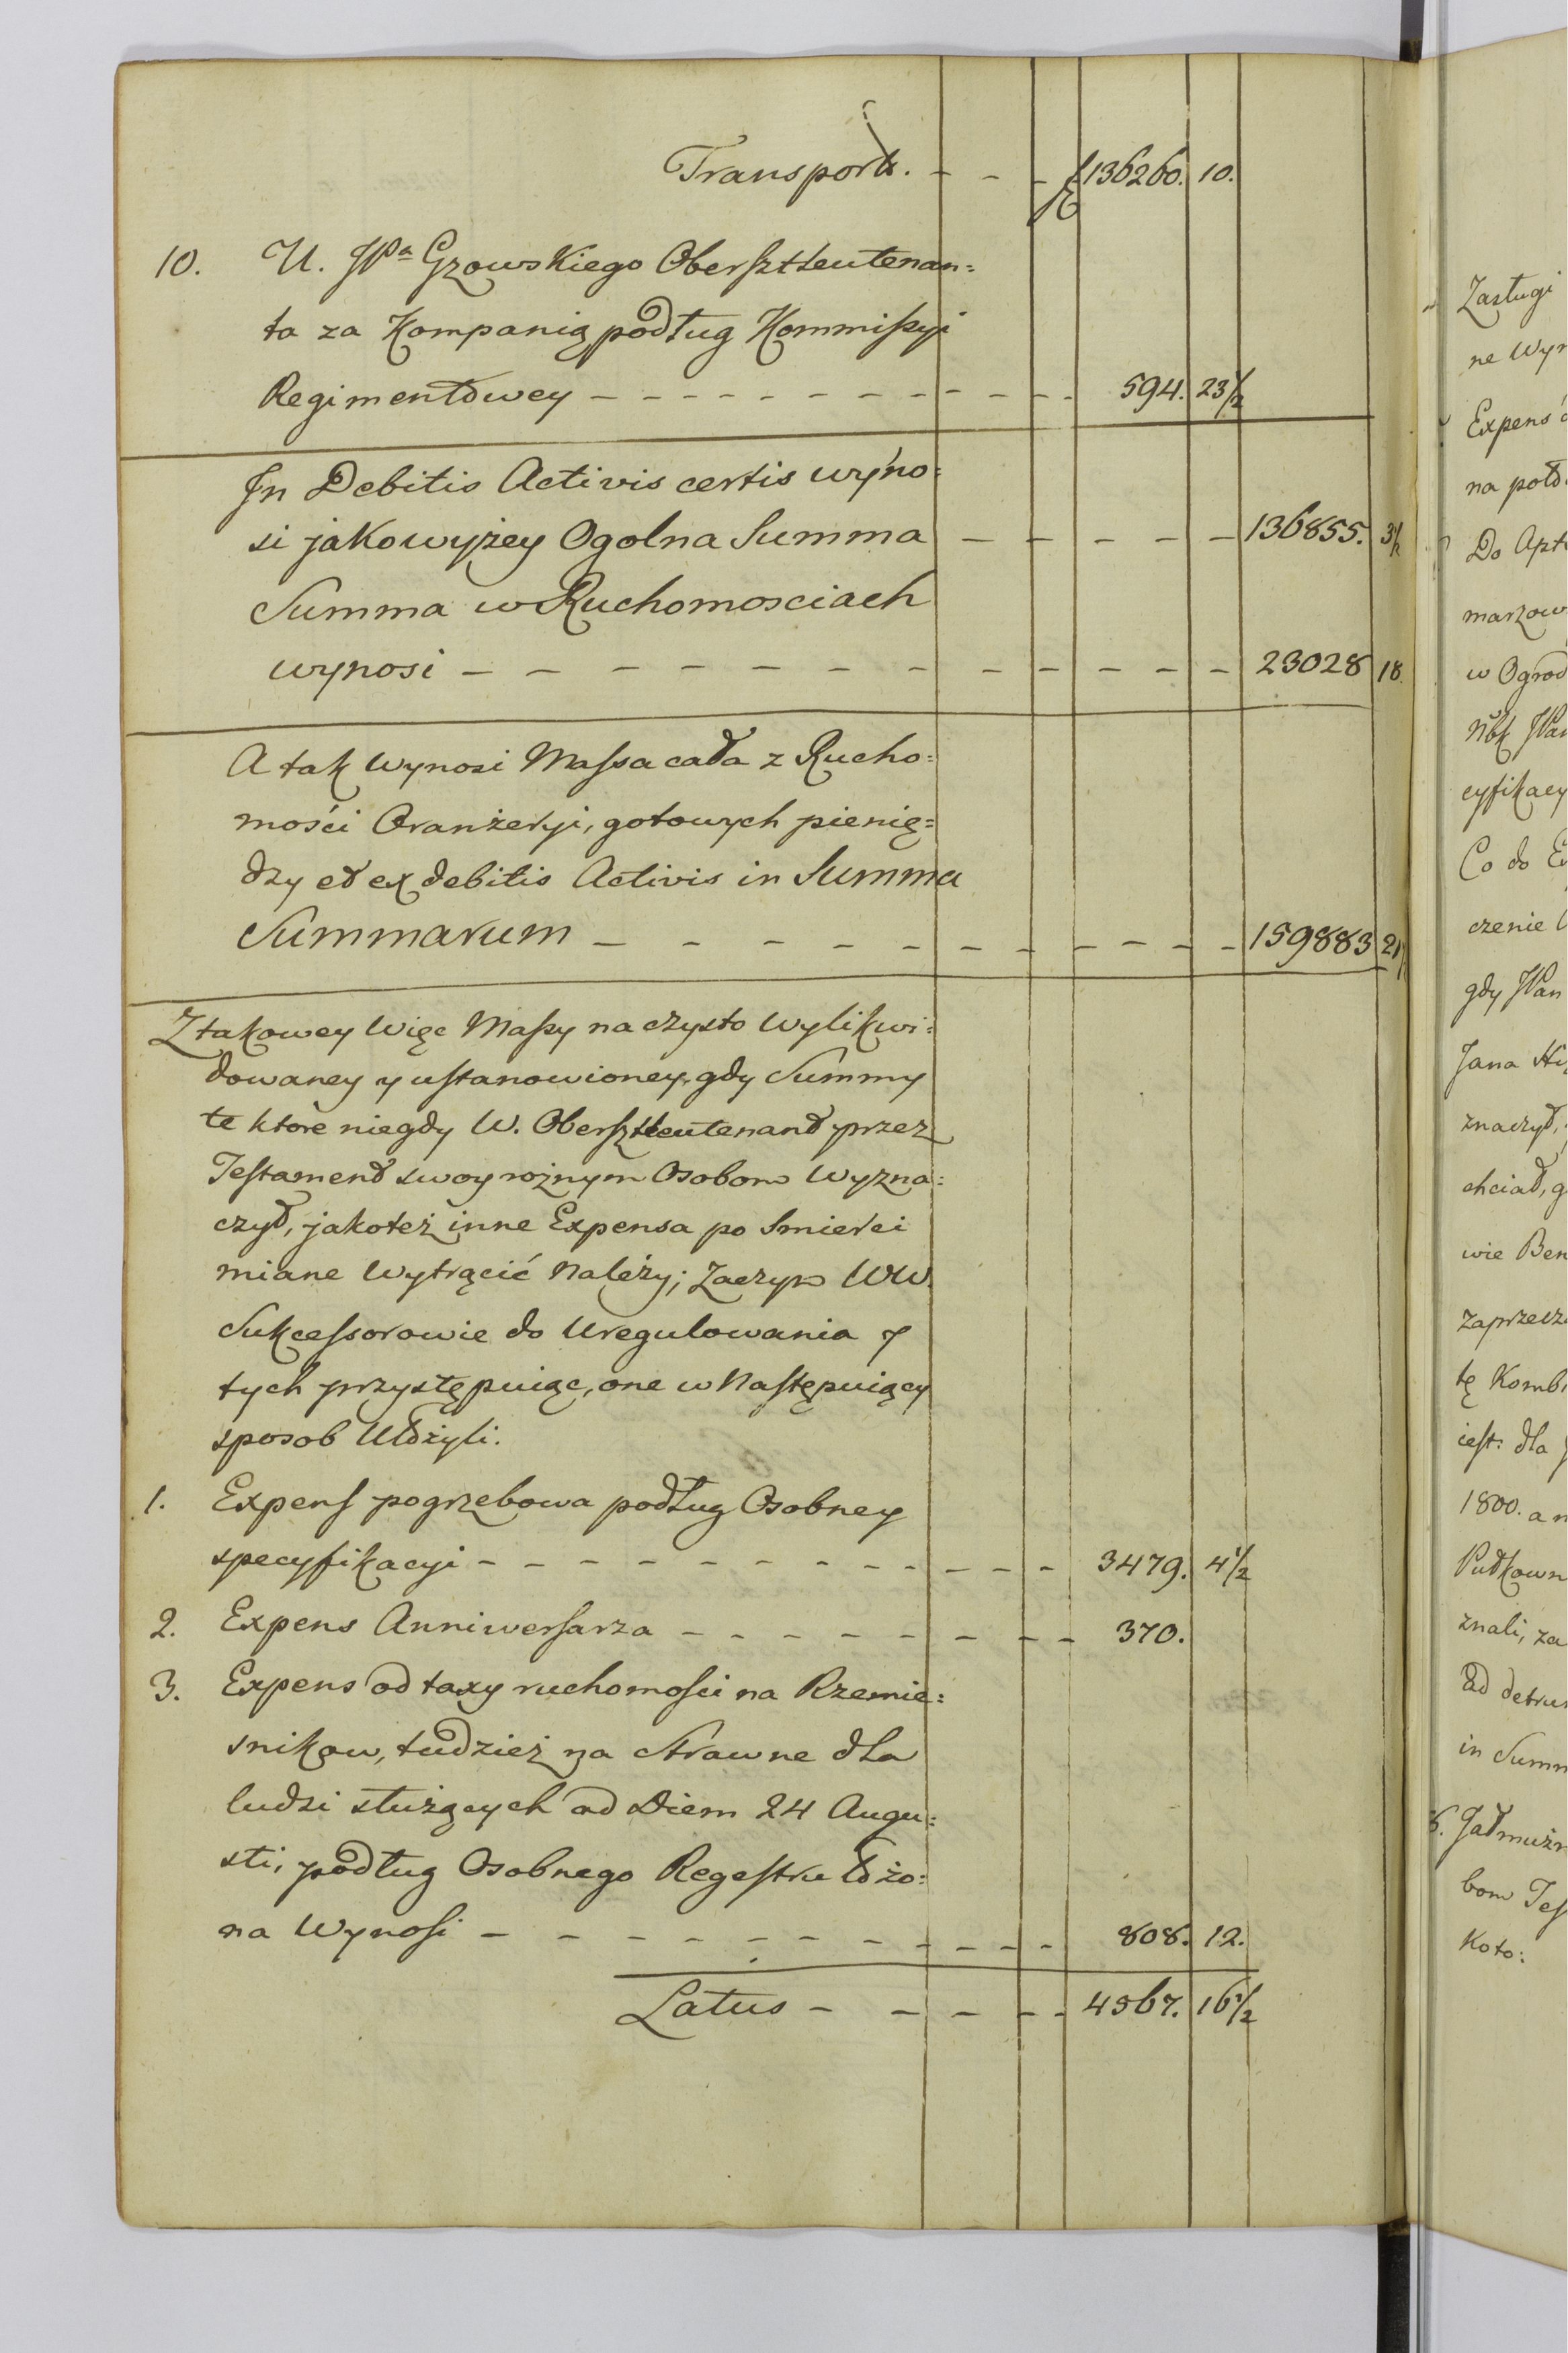 Transport. - - - fl 136260. 10.
10. U. JPa Gzowskiego Obersztleutenan=
ta za Kompanią podług Kommissyi
Regimentowey - - - - - - - - - - 594. 23 1/2
In Debitis Activis certis wyno=
si jako wyżey Ogolna Summa - - - - - 136855. 3 1/2
Summa w Ruchomosciach
wynosi - - - - - - - - - - - - 23028 18.
A tak wynosi Massa cała z Rucho=
mości Oranżeryi, gotowych pienię=
dzy et ex debitis Activis in Summa
Summarum - - - - - - - - - - 159883 21
Z takowey Więc Massy na czysto Wylikwi=
dowaney y ustanowioney, gdy Summy
te ktore niegdy W. Obersztleutenant przez
Testament swoy rożnym Osobom Wyzna=
czył, jakoteż inne Expensa po Smierci
miane Wytrącić Należy; Zaczym WW.
Sukcessorowie do Uregulowania y
tych przystępuiąc, one w Następuiący
sposob Ułożyli.
1. Expens pogrzebowa podług Osobney
specyfikacyi - - - - - - - - - - - - 3479. 4 1/2
2. Expens Anniwersarza - - - - - - - - 370.
3. Expens od taxy ruchomości na Rzemie=
snikow, tudzież na Strawne dla
ludzi służących ad Diem 24 Augu=
sti, podług Osobnego Regestru łożo=
na Wynosi - - - - - - - - - - - 808. 12.
Latus - - - - - 4567. 16 1/2
Zasługi
ne Wyn
Expens
na poł
Do Apt
marzow
w Ogrod
cyfikacy
Co do
czenie
gdy JPan
Jana
znaczył,
chciał, g
wie Ben
zaprzecz
tę Komb
iest: dla
1800. a n
Pułkown
znali, za
ad detru
in Summ
6. Jałmużn
bom Tes
Koto: